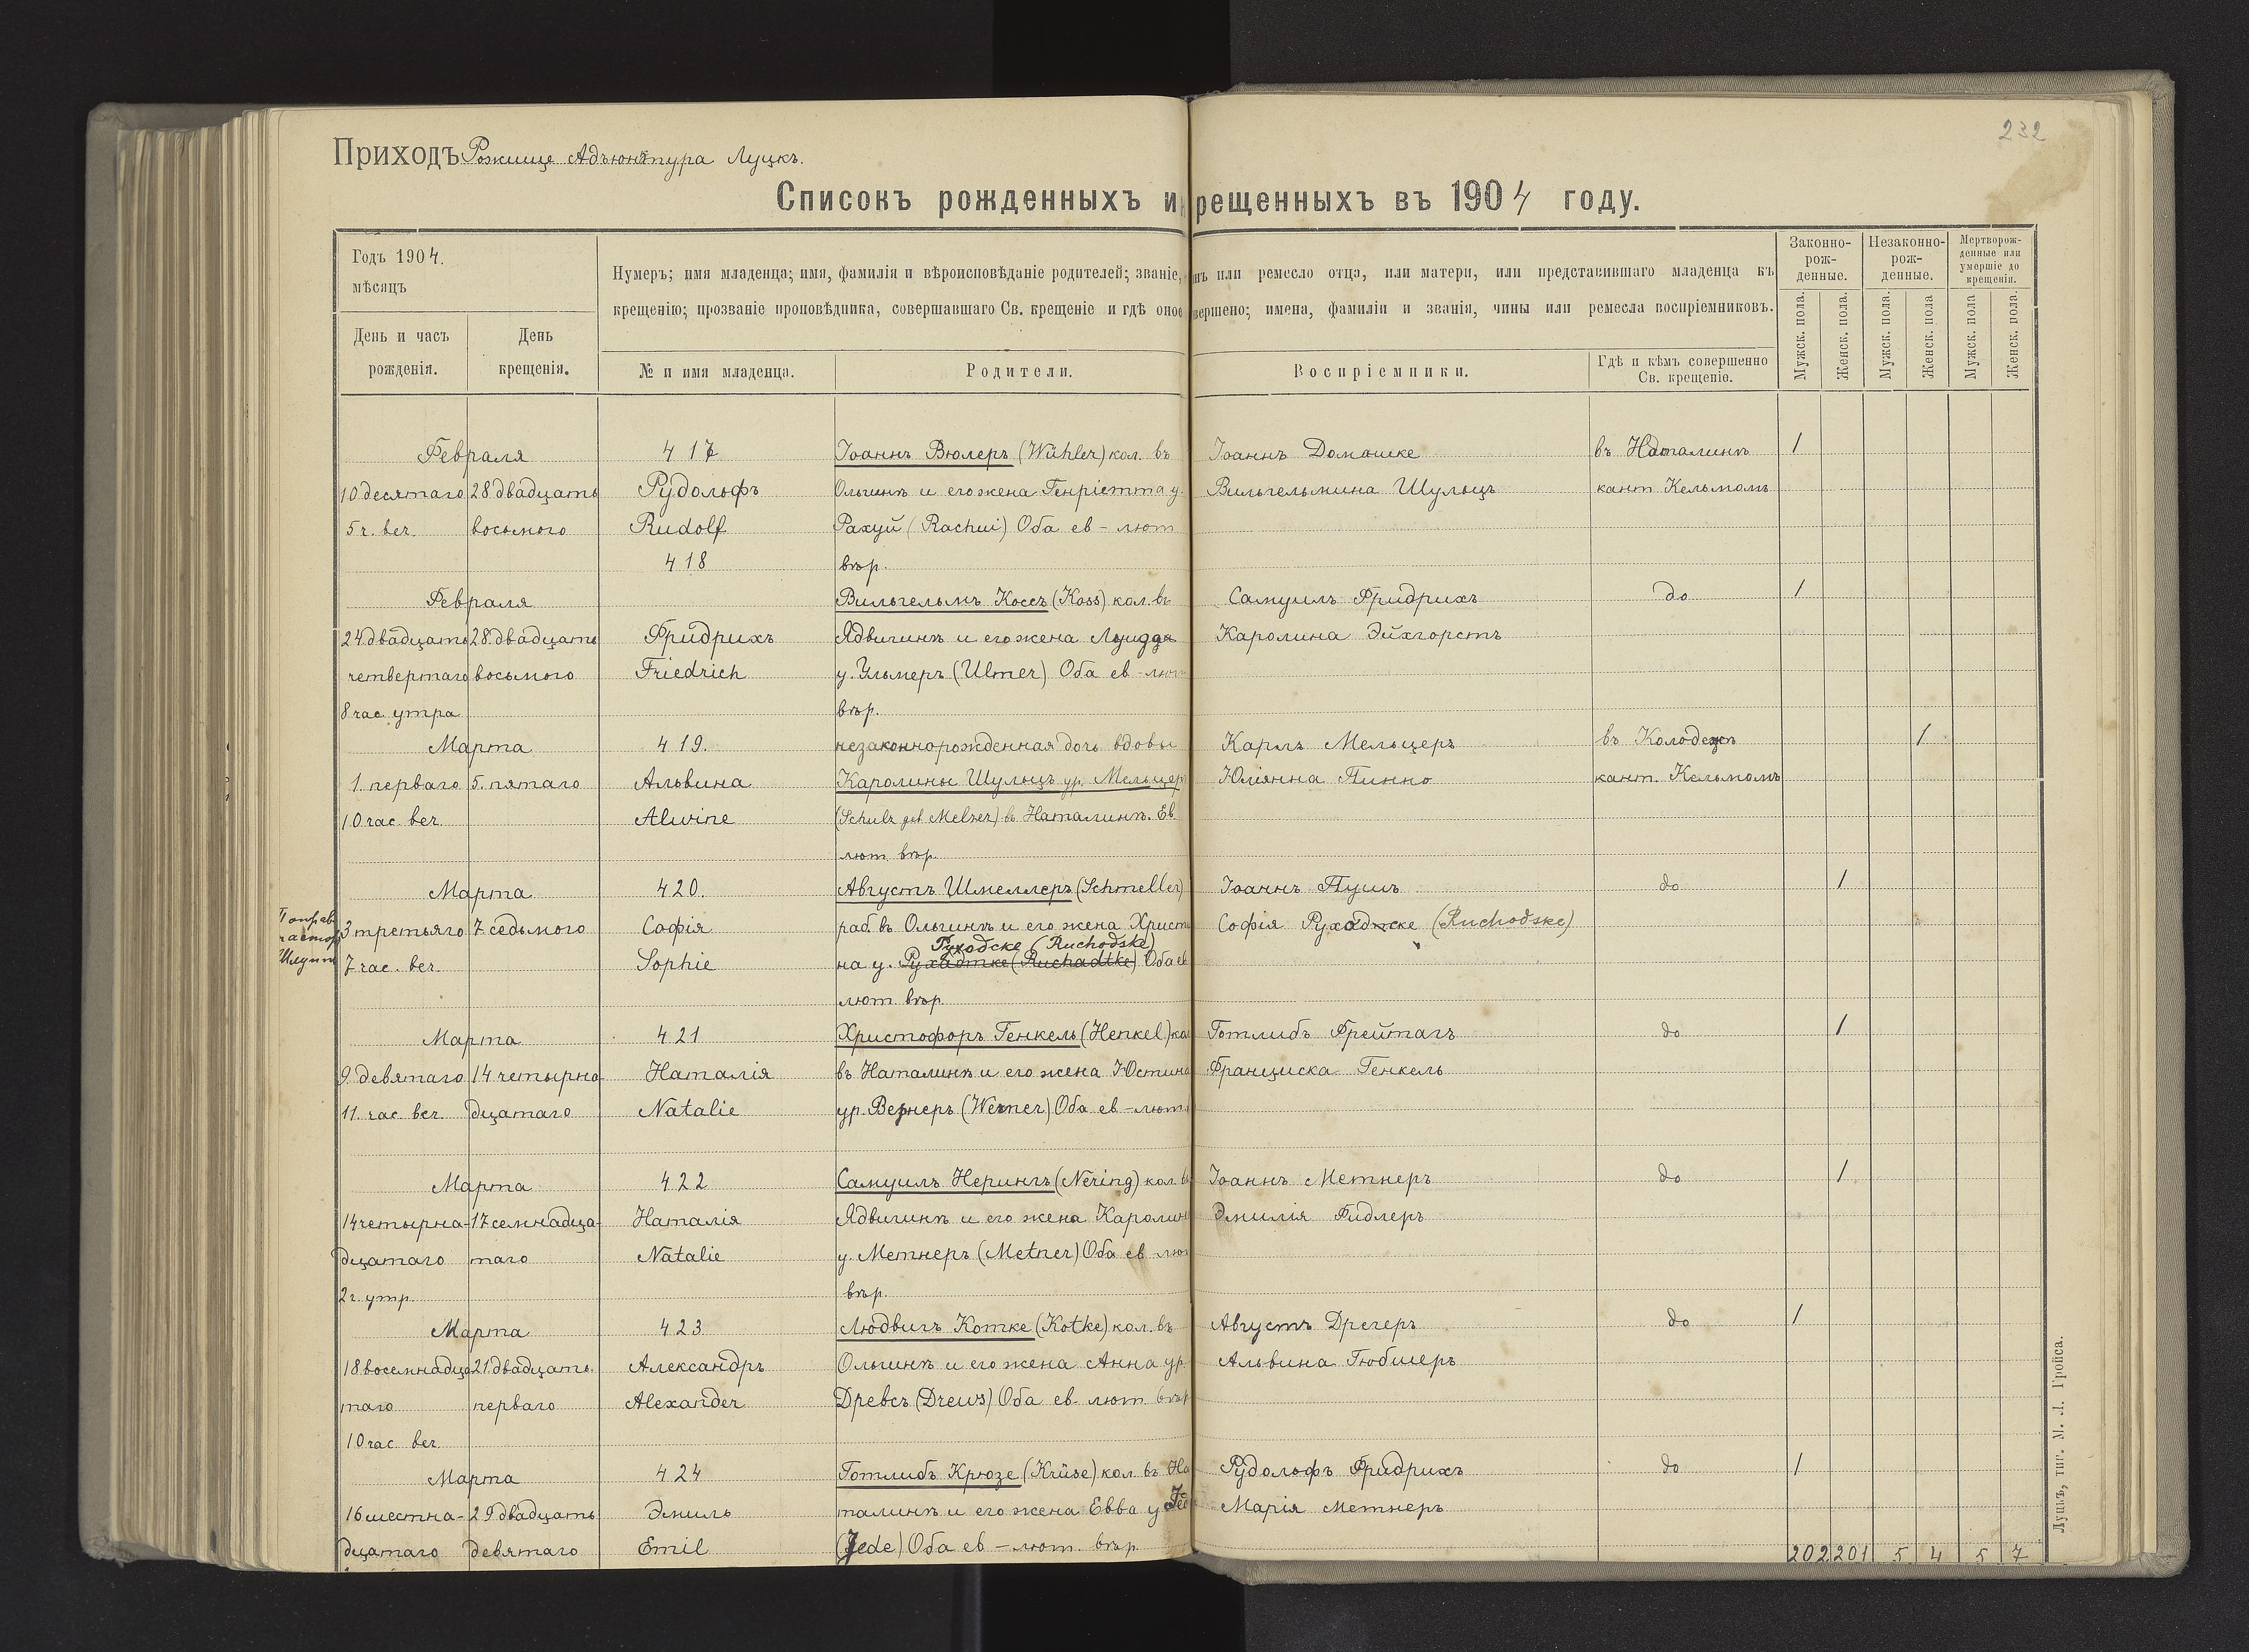 232
Приходъ Рожище Адъюнктура Луцкъ.
Списокъ рожденныхъ и крещенныхъ въ 1904 году.
Годъ 1904.
мѣсяцъ
День и часъ рожденія.
День крещенія.
Нумеръ; имя младенца; имя, фамилія и вѣроисповѣданіе родителей; званіе, чинъ или ремесло отца, или матери, или представившаго младенца къ
крещенію; прозваніе проповѣдника, совершавшаго Св. крещеніе и гдѣ оное совершено; имена, фамиліи и званія, чины или ремесла воспріемниковъ.
№ и имя младенца.
Родители.
Воспріемники.
Гдѣ и кѣмъ совершенно Св. крещеніе.
Законно-рож-денные.
Незаконно-рож-денные.
Мертворож-денные или умершіе до крещенія.
Мужск. пола. Женск. пола. Мужск. пола. Женск. пола Мужск. пола Женск. пола.
Февраля 417 Іоаннъ Вюлеръ (Wühler) кол. въ Іоаннъ Домашке въ Наталинѣ 1
10 десятаго 28 двадцать Рудольфъ Ольгинѣ и его жена Генріетта у. Вильгельмина Шульцъ кант. Кельмомъ
5 ч. веч. восьмого Rudolf Рахуй (Rachui) Оба ев-лют
418 вѣр.
Февраля Вильгельмъ Коссъ (Koss) кол. въ Самуилъ Фридрихъ до 1
24 двадцать 28 двадцать Фридрихъ Ядвигинѣ и его жена Луидда Каролина Эйхгорстъ
четвертаго восьмого Friedrich у. Ульмеръ (Ulmer) Оба ев-лют
8 час. утра вѣр.
Марта 419. незаконнорожденная дочь вдовы Карлъ Мельцеръ въ Колодежѣ 1
1. перваго 5. пятаго Альвина Каролины Шульцъ ур. Мельцеръ Юліянна Пинно кант. Кельмомъ
10 час. веч. Alwine (Schulz geb Melzer) въ Наталинѣ. Ев
лют вѣр.
Марта 420. Августъ Шмеллеръ (Schmeller) Іоаннъ Пушъ до 1
3 третьяго 7 седьмого Софія раб. въ Ольгинѣ и его жена Христи Софія Рухадтске (Ruchodske)
Руходске (Ruchodske)
7 час. веч. Sophie на у. Рухадтке (Ruchadtke) Оба ев
лют вѣр.
Марта 421 Христофоръ Генкель (Henkel) кол Готлибъ Фрейтагъ до 1
9 девятаго 14 четырна- Наталія въ Наталинѣ и его жена Юстина Франциска Генкель
11. час. веч. дцатаго Natalie ур. Вернеръ (Werner) Оба ев-лют
Марта 422 Самуилъ Нерингъ (Nering) кол. въ Іоаннъ Метнеръ до 1
14 четырна- 17 семнадца- Наталія Ядвигинѣ и его жена Каролина Эмилія Фидлеръ
дцатаго таго Natalie у. Метнеръ (Metner) Оба ев лют
2 ч. утр. вѣр.
Марта 423 Людвигъ Котке (Kotke) кол. въ Августъ Дрегеръ до 1
18 восемнадца 21 двадцать Александръ Ольгинѣ и его жена Анна ур. Альвина Гюбшеръ
таго перваго Alexander Древсъ (Drews) Оба ев. лют. вѣр
10 час веч.
Марта 424 Готлибъ Крюзе (Krüse) кол. въ На Рудольфъ Фридрихъ до 1
16 шестна- 29 двадцать Эмиль талинѣ и его жена Евва у Марія Метнеръ
дцатаго девятаго Emil (Jede) Оба ев-лют. вѣр
202 201 5 4 5 7
Луцкъ, тип. М. Л. Гройса.